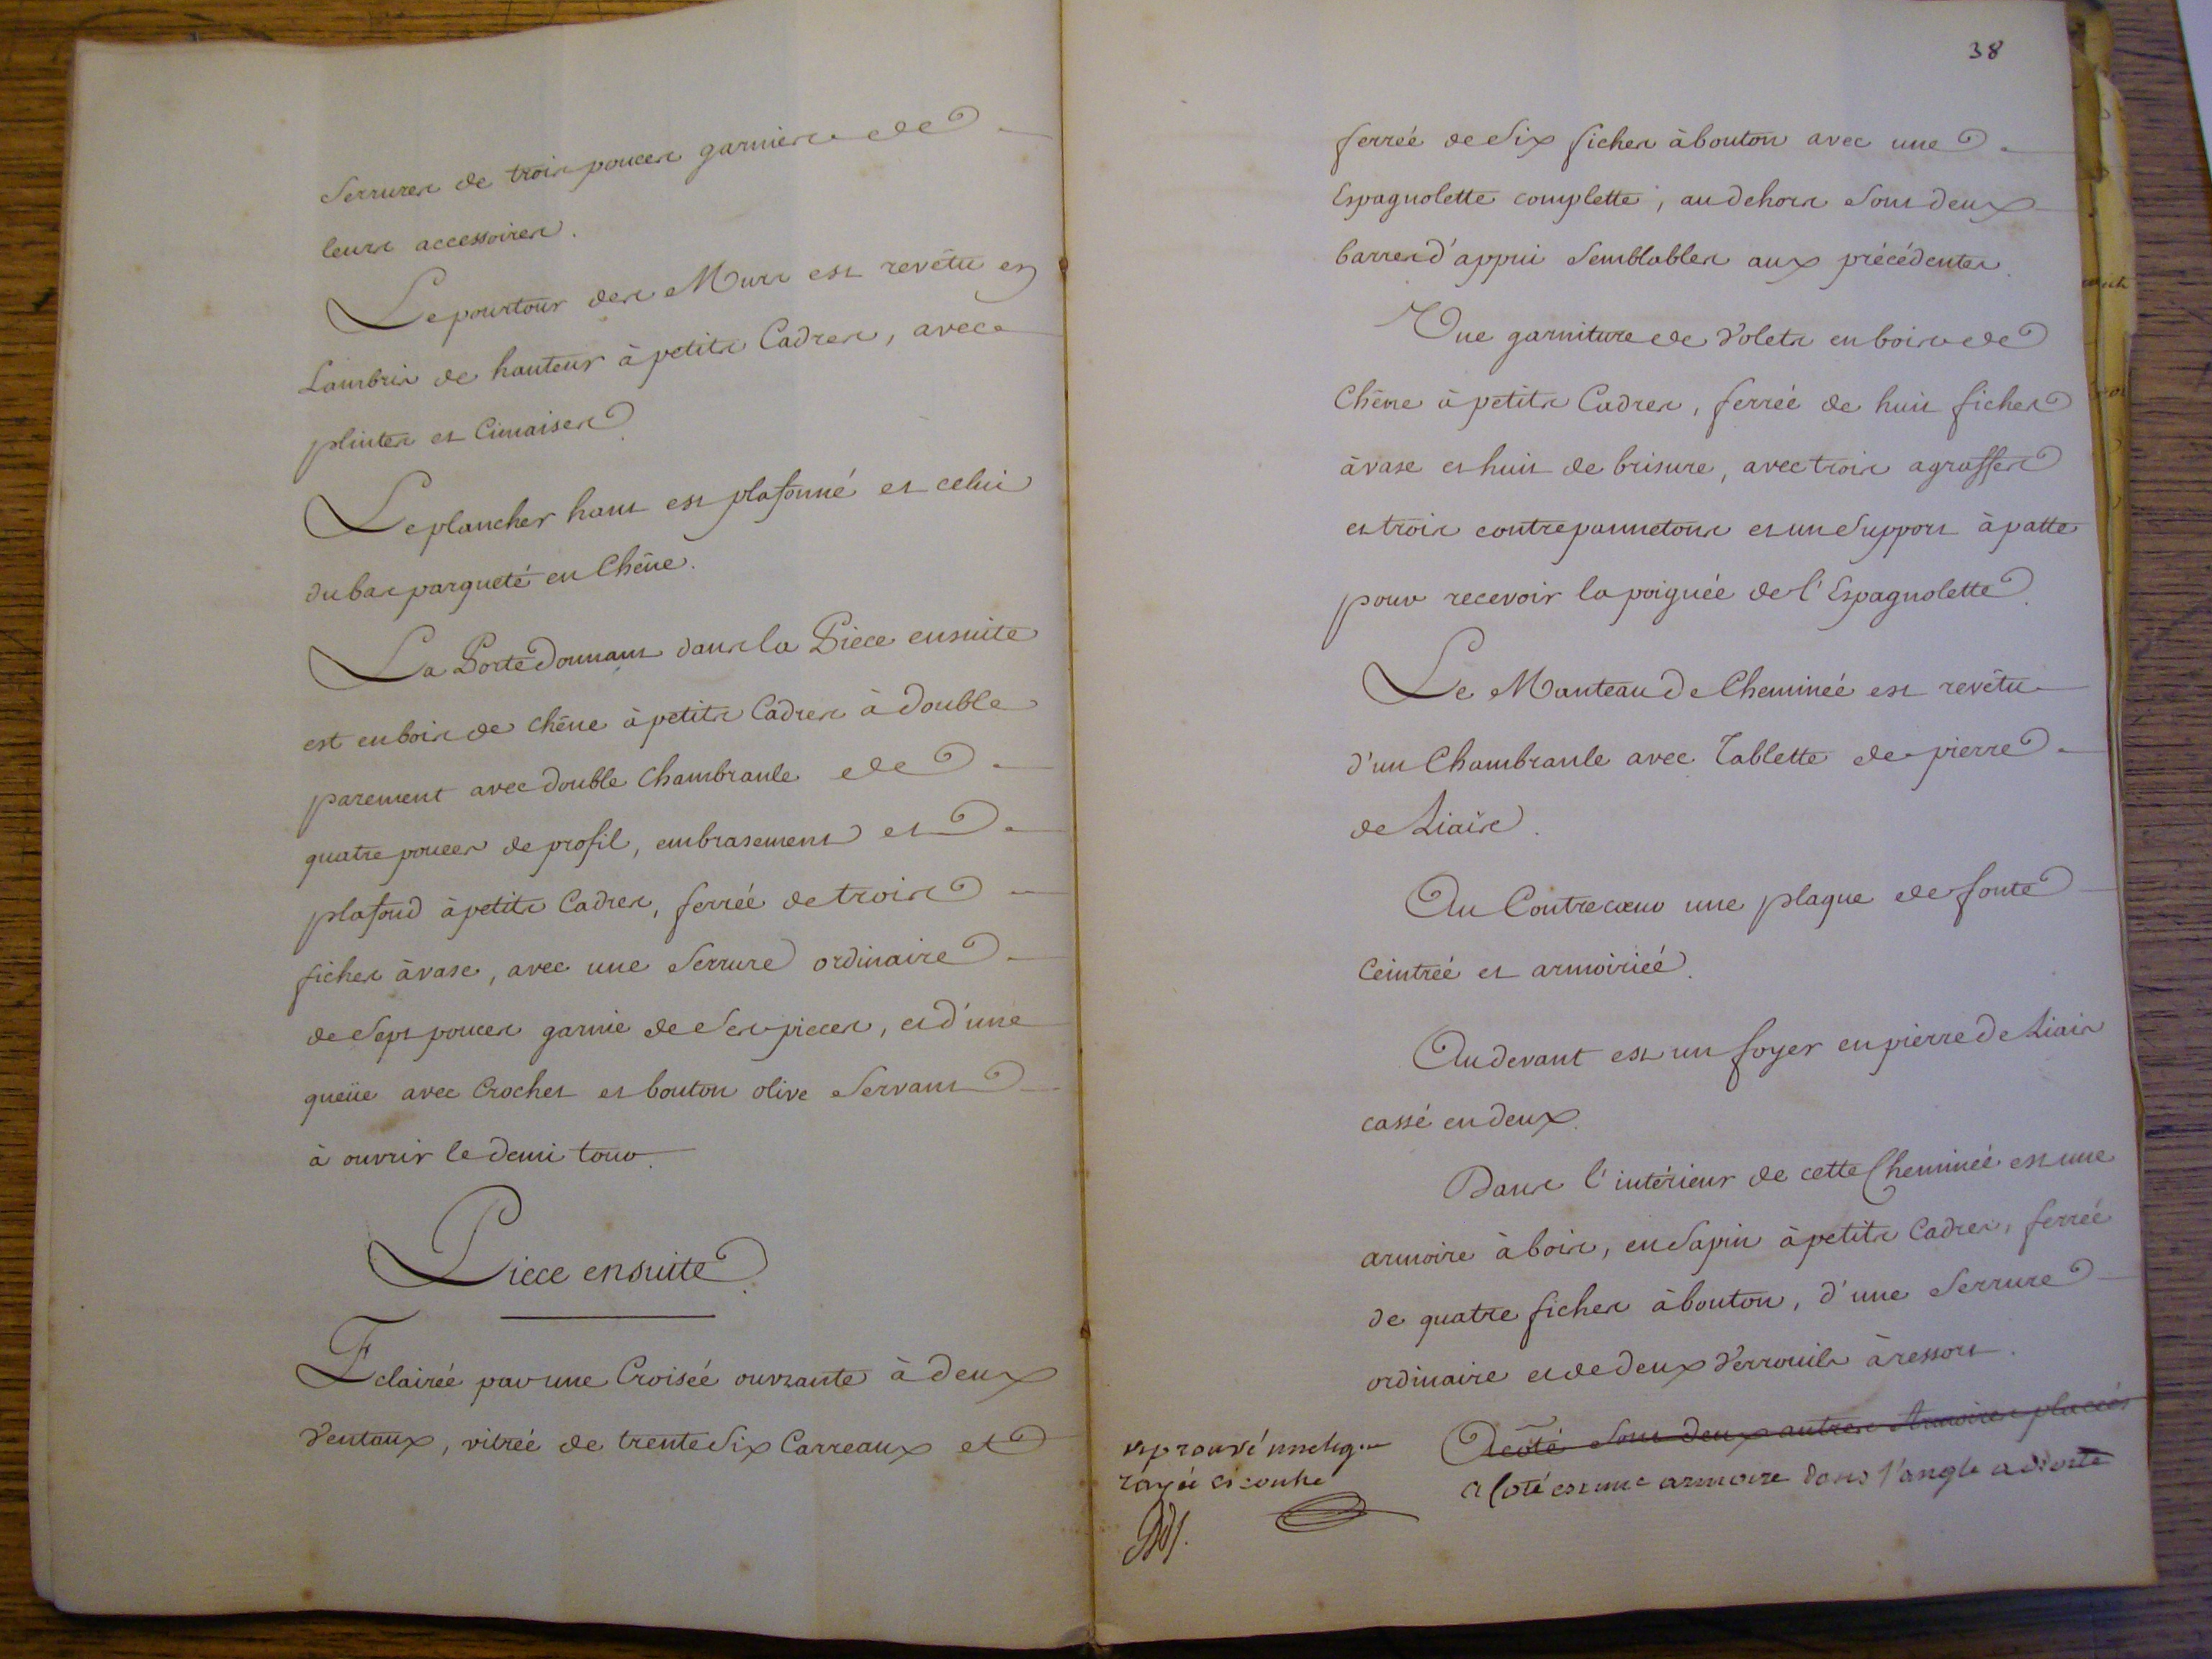 Serrures de trois pouces garnies de
leurs accessoires.
Le pourtour des Murs est revêtu en
Lambris de hauteur à petits Cadres, avec
plintes et Cimaises.
Le plancher haut est plafonné et celui
du bas parqueté en Chêne.
La Porte donnant dans la Piece ensuite
est en bois de chêne à petits Cadres à double
parement avec double Chambranle de
quatre pouces de profil, embrasement et
plafond à petits Cadres, ferrée de trois
fiches à vase, avec une Serrure ordinaire
de Sept pouces garnie de Ses pieces, et d'une
queüe avec Crochet et bouton olive Servant
à ouvrir le demi tour.
Piece ensuite.
Eclairée par une Croisée ouvrante à deux
Ventaux, vitrée de trente Six Carreaux et
38
ferrée de Six fiches à bouton avec une
Espagnolette complette, au dehors Sont deux
barres d'appui Semblables aux précédentes.
Une garniture de Volets en bois de
Chêne à petits Cadres, ferrée de huit fiches
à vase et huit de brisure, avec trois agraffes
et trois contrepannetons et un Support à patte
pour recevoir la poignée de l'Espagnolette.
Le Manteau de Cheminée est revêtu
d'un Chambranle avec Tablette de pierre
de Liais.
Au Contrecœur une plaque de fonte
Ceintrée et armoiriée.
Au devant est un foyer en pierre de Liais
cassé en deux.
Dans l'intérieur de cette Cheminée est une
armoire à bois, en Sapin à petits Cadres, ferrée
de quatre fiches à bouton, d'une Serrure
ordinaire et de deux Verrouils à ressort.
A côté Sont deux autres Armoires placées
a Coté est une armoire dans l'angle a droite
approuvé une ligne
rayée ci contre